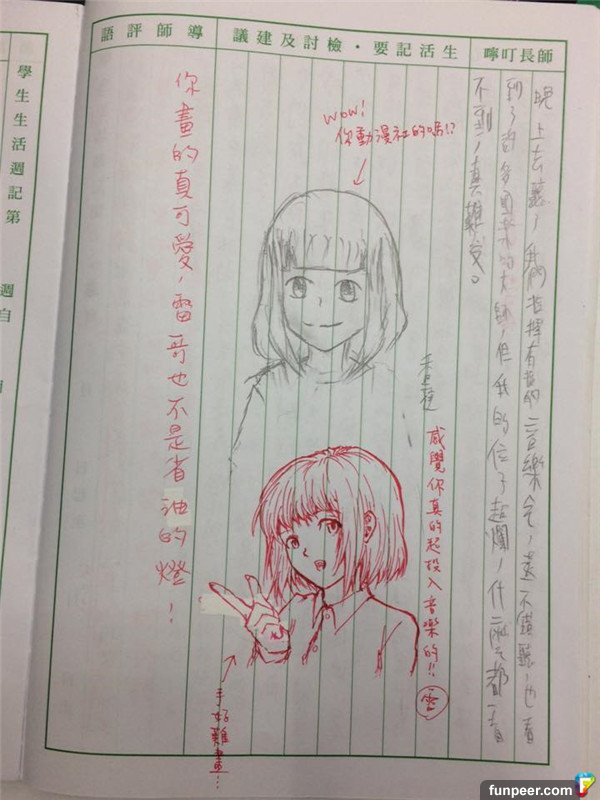 師長叮嚀
生活記要・檢討及建議
導師評語
晚上去聽，我們指揮有指的音樂會，還不錯聽，也看
到了許多國樂的大師，但我的位子超爛，什麼都看
不到，真難受。
WOW!
你動漫社的嗎!?
感覺你真的超投入音樂的!! 雷
手好難畫…
你畫的真可愛，雷哥也不是省油的燈！
學生生活週記第
週自
funpeer.com